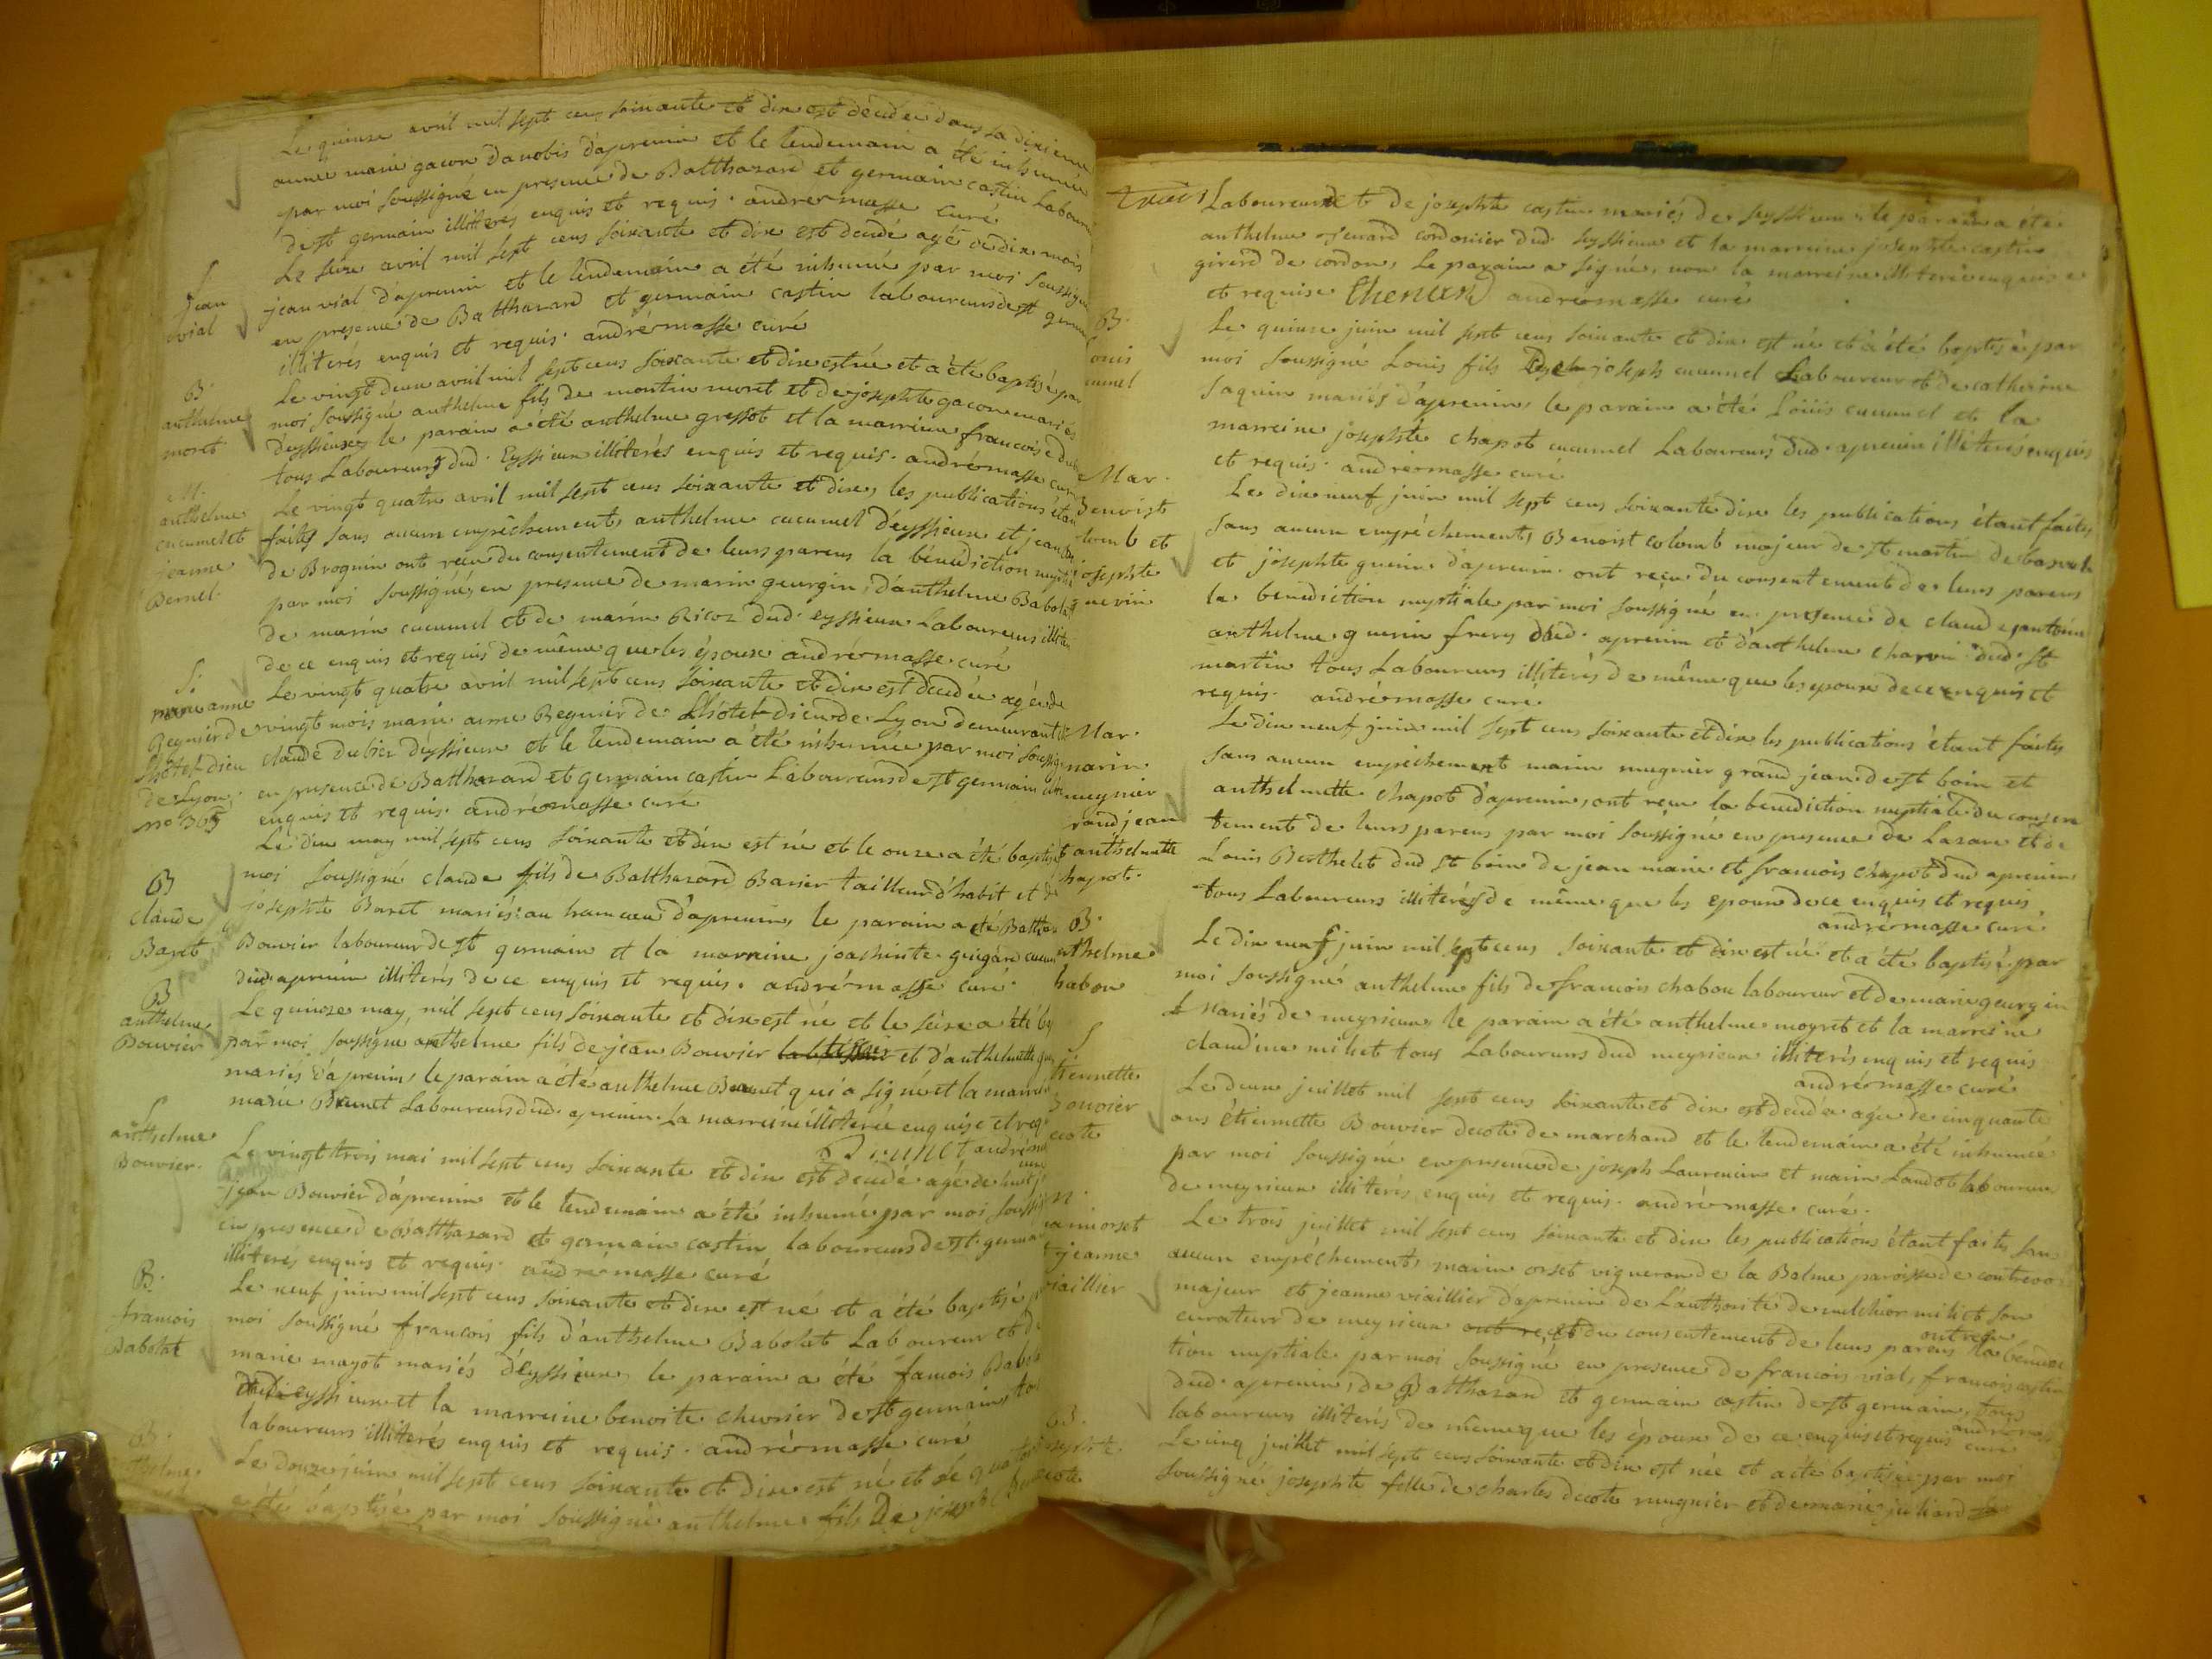 Le quinze avril mil sept cens soixante et dix est décédée dans sa dixieme
année marie gacon danobis d'aprenin et le lendemain a été inhumée
par moi soussigné en presence de Balthazard et germain castin Labour
de st germain illiteres enquis et requis. andré masse curé
Jean
vial
Le seize avril mil sept cens soixante et dix est décédé agé de dix mois
jean vial d'aprenin et le lendemain a été inhumé par moi soussigné
en presence de Balthazard et germain castin laboureurs de st germ
illiterés enquis et requis. andré masse curé
B.
anthelme
moret
Le vingt deux avril mil sept cens soixante et dix est né et a été baptisé par
moi soussigné anthelme fils de martin moret et de josephte gacon mariés
d'eyssieux, le parain a été anthelme gressot et la marreine francoise
tous Laboureurs dud. Eyssieux illiterés enquis et requis. andré masse cur
M.
anthelme
cucumel et
jeanne
Bernel.
Le vingt quatre avril mil sept cens soixante et dix, les publications étan
faites sans aucun empêchement, anthelme cucumel d'eyssieux et jeanne
de Brognin ont reçu du consentement de leurs parens la bénédiction nuptia
par moi soussigné, en presence de marin geurgin, d'anthelme Babolat
de marin cucumel et de marin Ricoz dud. eyssieux Laboureurs illite
de ce enquis et requis de même que les époux andré masse curé
S.
marie anne
Regnier de
l'hôtel-dieu
de Lyon.
no 365
Le vingt quatre avril mil sept cens soixante et dix est décédée agée de
vingt mois marie anne Regnier de l'hôtel-dieu de Lyon demeurant
claude dubier d'eyssieux et le lendemain a été inhumée par moi soussig
en presence de Balthazard et germain castin Laboureurs de st germain
enquis et requis. andré masse curé
B
claude
Baret
Le dix may mil sept cens soixante et dix est né et le onze a été baptisé
moi soussigné claude fils de Balthazard Barier tailleur d'habit et de
josephte Baret mariés au hameau d'aprenin, le parain a été Balthaz
Bouvier laboureur de st germain et la marraine joachinte gringard cucum
dud. aprenin illiterés de ce enquis et requis. andré masse curé
B
anthelme
Bouvier
Le quinze may, mil sept cens soixante et dix est né et le seize a été b
par moi soussigné anthelme fils de jean Bouvier et d'anthelmette
mariés d'aprenin, le parain a été anthelme Brunet qui a signé et la marrei
marie Brunet Laboureurs dud. aprenin. La marreine illiterée enquise et req
Brunet andré
anthelme
Bouvier.
Le vingt trois mai mil sept cens soixante et dix est décédé agé de huit j
jean Bouvier d'aprenin et le lendemain a été inhumé par moi soussig
en presence de Balthazard et germain castin laboureurs de st. germai
illiterés enquis et requis. andré masse curé
B.
francois
Babolat
Le neuf juin mil sept cens soixante et dix est né et a été baptisé
moi soussigné francois fils d'anthelme Babolat Laboureur et d
marie mayot mariés d'Eyssieux, le parain a été francois Babol
dud. eyssieux et la marreine benoite chevrier de st germain, to
laboureurs illiterés enquis et requis. andré masse curé
B.
Le douze juin mil sept cens soixante et dix est né et le quatorze
a été baptisé par moi soussigné anthelme fils de joseph
Laboureur et de josephte castin mariés de seyssieux, le parain a été
anthelme thenard cordonier dud. seyssieux et la marreine josephte castin
girerd de cordon, Le parain a signé, non la marreine illiterée enquise
et requise Thenard andré masse curé
B.
Louis
cucumel
Le quinze juin mil sept cens soixante et dix est né et a été baptisé par
moi soussigné Louis fils de joseph cucumel Laboureur et de catherine
Jaquin mariés d'aprenin, le parain a été Louis cucumel et la
marreine josephte chapot cucumel Laboureurs dud. aprenin illiterés enquis
et requis. andré masse curé
Mar.
Benoist
colomb et
josephte
guerin
Le dix neuf juin mil sept cens soixante dix les publications étant faites
sans aucun empéchement, Benoist colomb majeur de st martin de bavel
et josephte guerin d'aprenin. ont reçu du consentement de leurs parens
la bénédiction nuptiale par moi soussigné en presence de claude, antoine
anthelme guerin freres dud. aprenin et d'anthelme charvin dud. st
martin tous Laboureurs illiterés de même que les epoux de ce enquis et
requis. andré masse curé
Mar.
marin
meynier
grand jean
et anthelmette
chapot.
Le dix neuf juin mil sept cens soixante et dix les publications étant faites
sans aucun empêchement marin mugnier grand jean de st boin et
anthelmette chapot d'aprenin, ont reçu la bénédiction nuptiale du consen
tement de leurs parens par moi soussigné en presence de Lazare et de
Louis Berthelet dud st boin de jean marie et francois chapot dud aprenin
tous Laboureurs illiterés de même que les epoux de ce enquis et requis
andré masse curé
B.
anthelme
chabou
Le dix neuf juin mil sept cens soixante et dix est né et a été baptisé par
moi soussigné anthelme fils de francois chabou laboureur et de marie geurgin
mariés de meyrieux, le parain a été anthelme moyret et la marreine
claudine milliet tous Laboureurs dud meyrieux illiterés enquis et requis
andré masse curé
S
étiennette
Bouvier
decote
Le deux juillet mil sept cens soixante et dix est décédée agée de cinquante
ans étiennette Bouvier decote de marchand et le lendemain a été inhumée
par moi soussigné en presence de joseph Laurencin et marin Landot laboureurs
de meyrieux illiterés enquis et requis. andré masse curé.
M.
marin orset
et jeanne
viaillier
Le trois juillet mil sept cens soixante et dix les publications étant faites sans
aucun empêchement, marin orset vigneron de la Balme paroisse de contrevoz
majeur et jeanne viaillier d'aprenin de l'authorité de melchior milliet son
curateur de meyrieux et du consentement de leurs parens ont reçu la bénédic
tion nuptiale par moi soussigné en presence de francois vial, francois castin
dud. aprenin, de Balthazard et germain castin de st germain, tous
laboureurs illiterés de même que les époux de ce enquis et requis andré masse
curé
B.
josephte
decote
Le cinq juillet mil sept cens soixante et dix est née et a été baptisée par moi
soussigné josephte fille de charles decote mugnier et de marie juliard